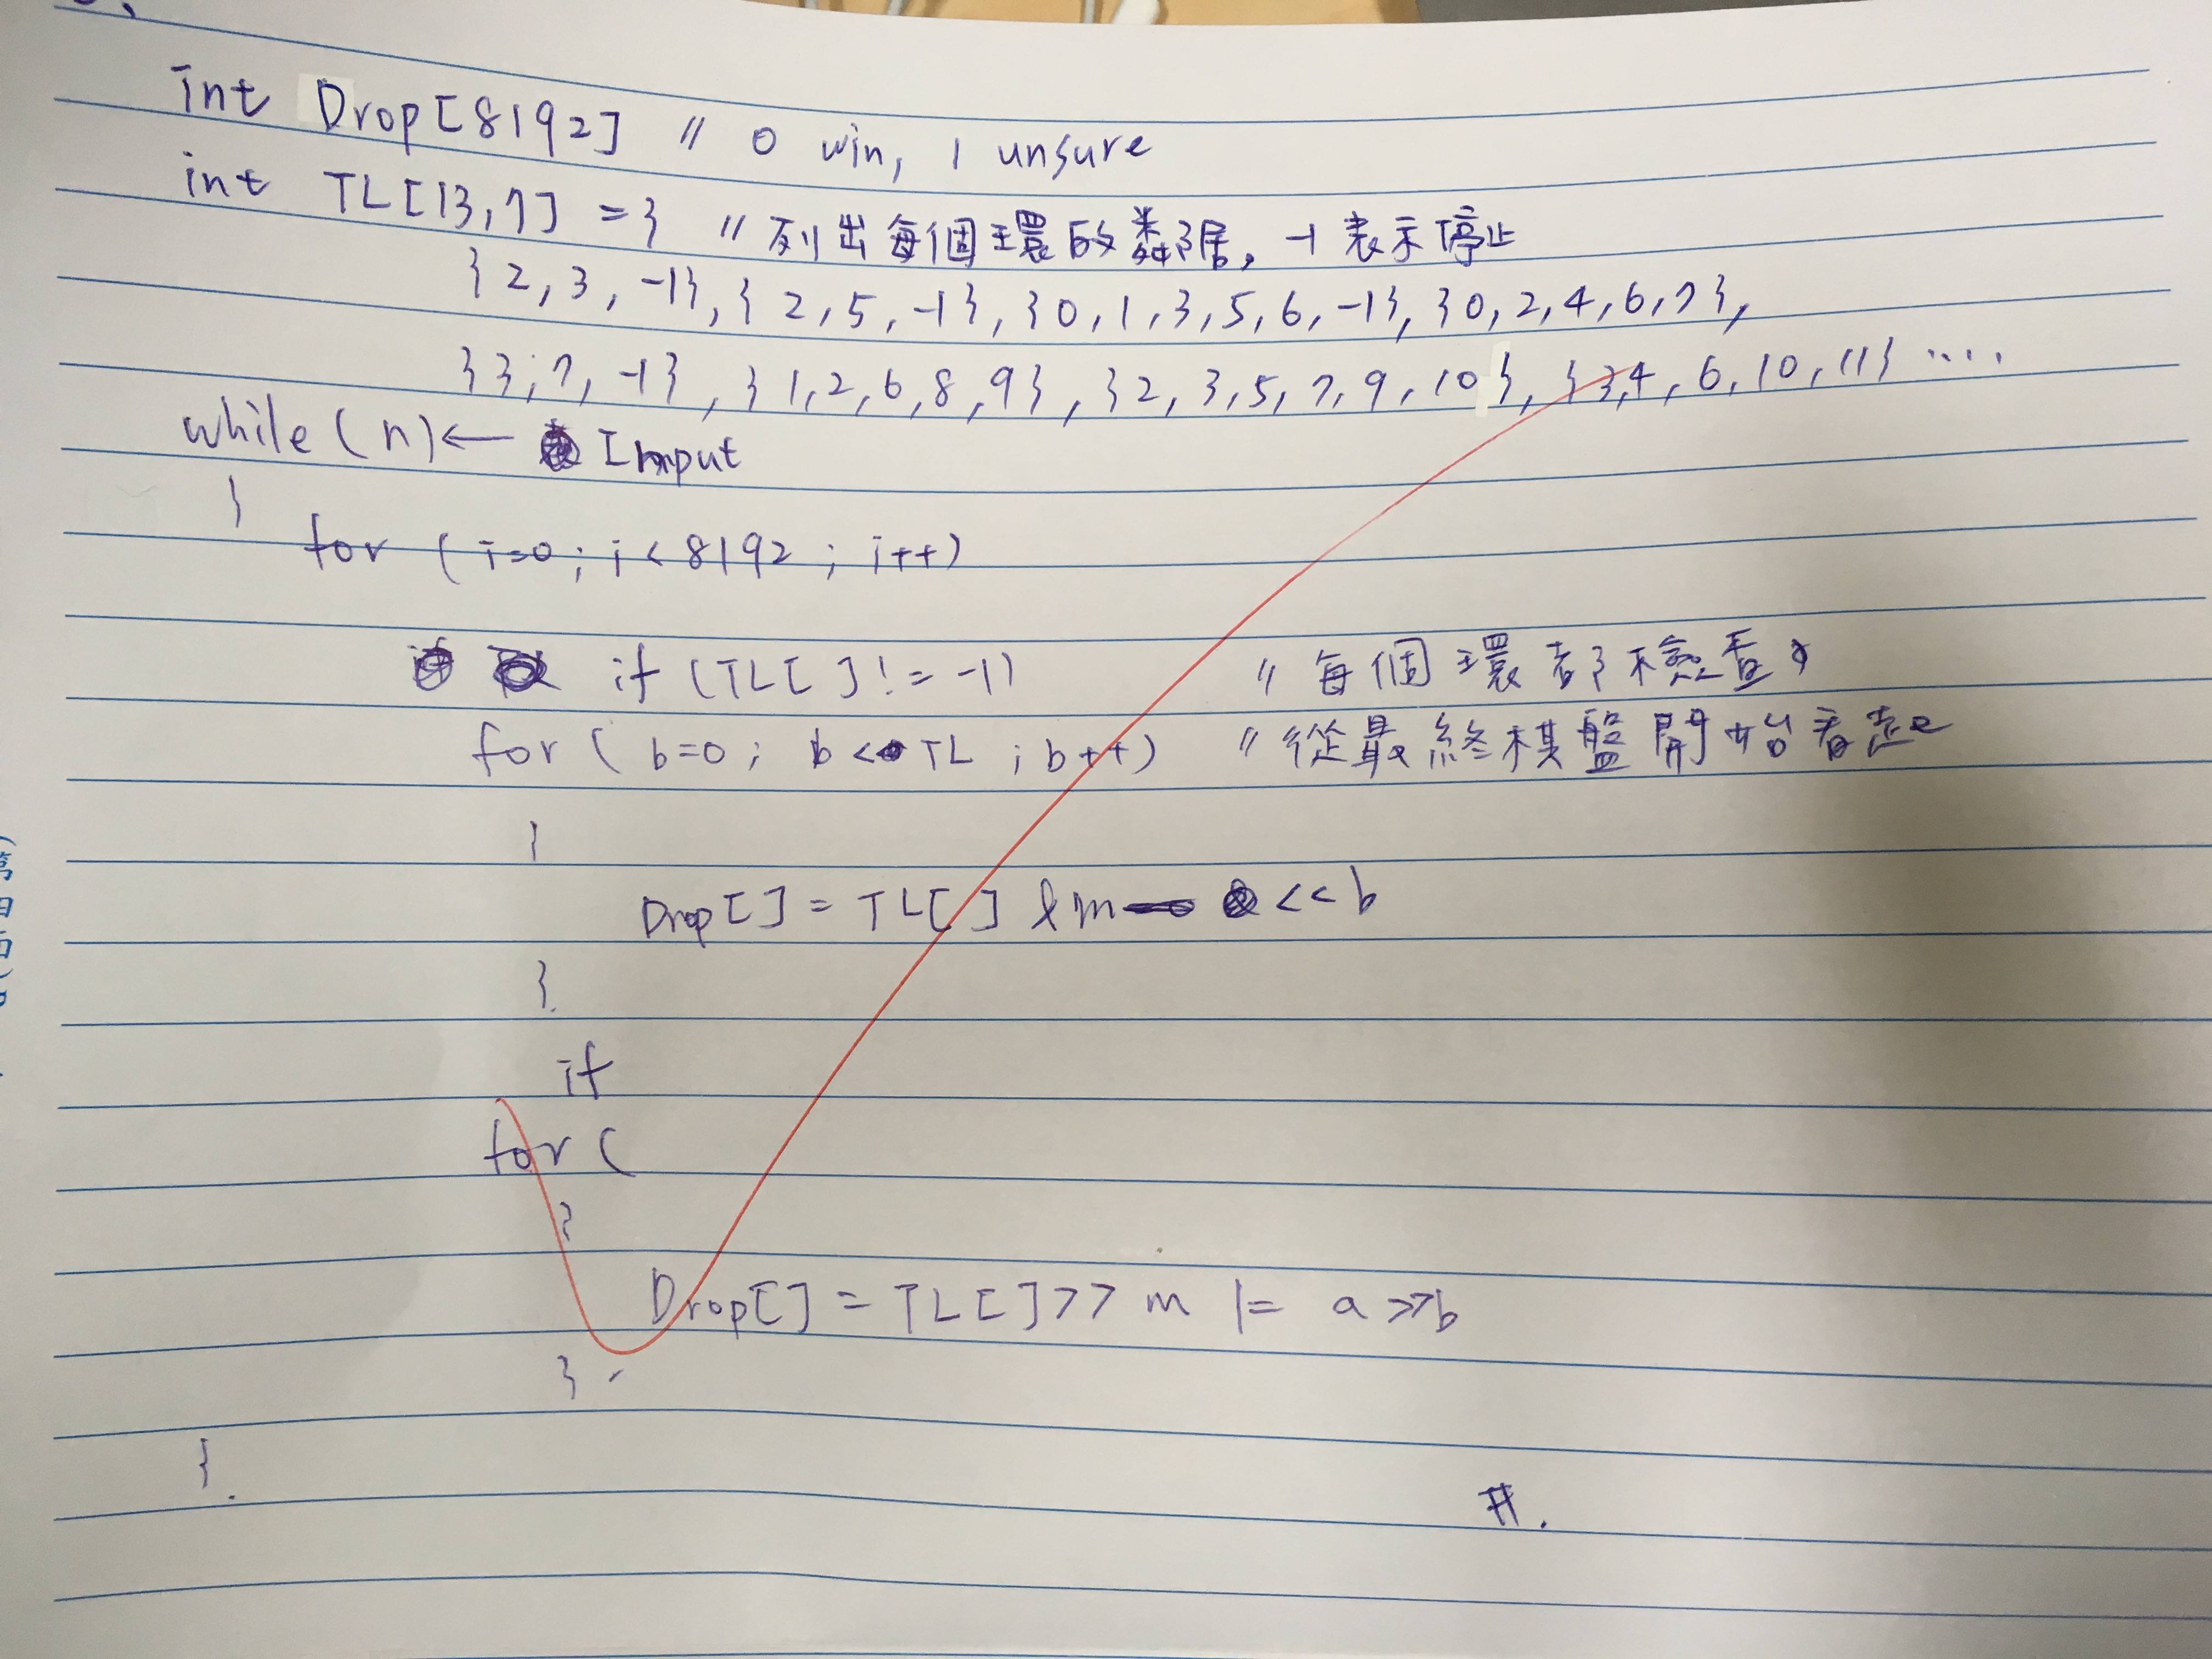 int Drop[8192] // 0 win, 1 unsure
int TL[13,7] = { // 列出每個環的鄰居, -1 表示停止
{2, 3, -1}, {2, 5, -1}, {0, 1, 3, 5, 6, -1}, {0, 2, 4, 6, 7},
{3, 7, -1}, {1, 2, 6, 8, 9}, {2, 3, 5, 7, 9, 10}, {3, 4, 6, 10, 11} ....
while (n) ← Input
{
for (i=0; i < 8192; i++)
if (TL[ ] != -1) // 每個環都檢查
for (b=0; b < TL; b++) // 從最終棋盤開始看起
{
Drop[ ] = TL[ ] & m << b
}
if
for (
{
Drop[ ] = TL[ ] >> m |= a >> b
}
}
#.